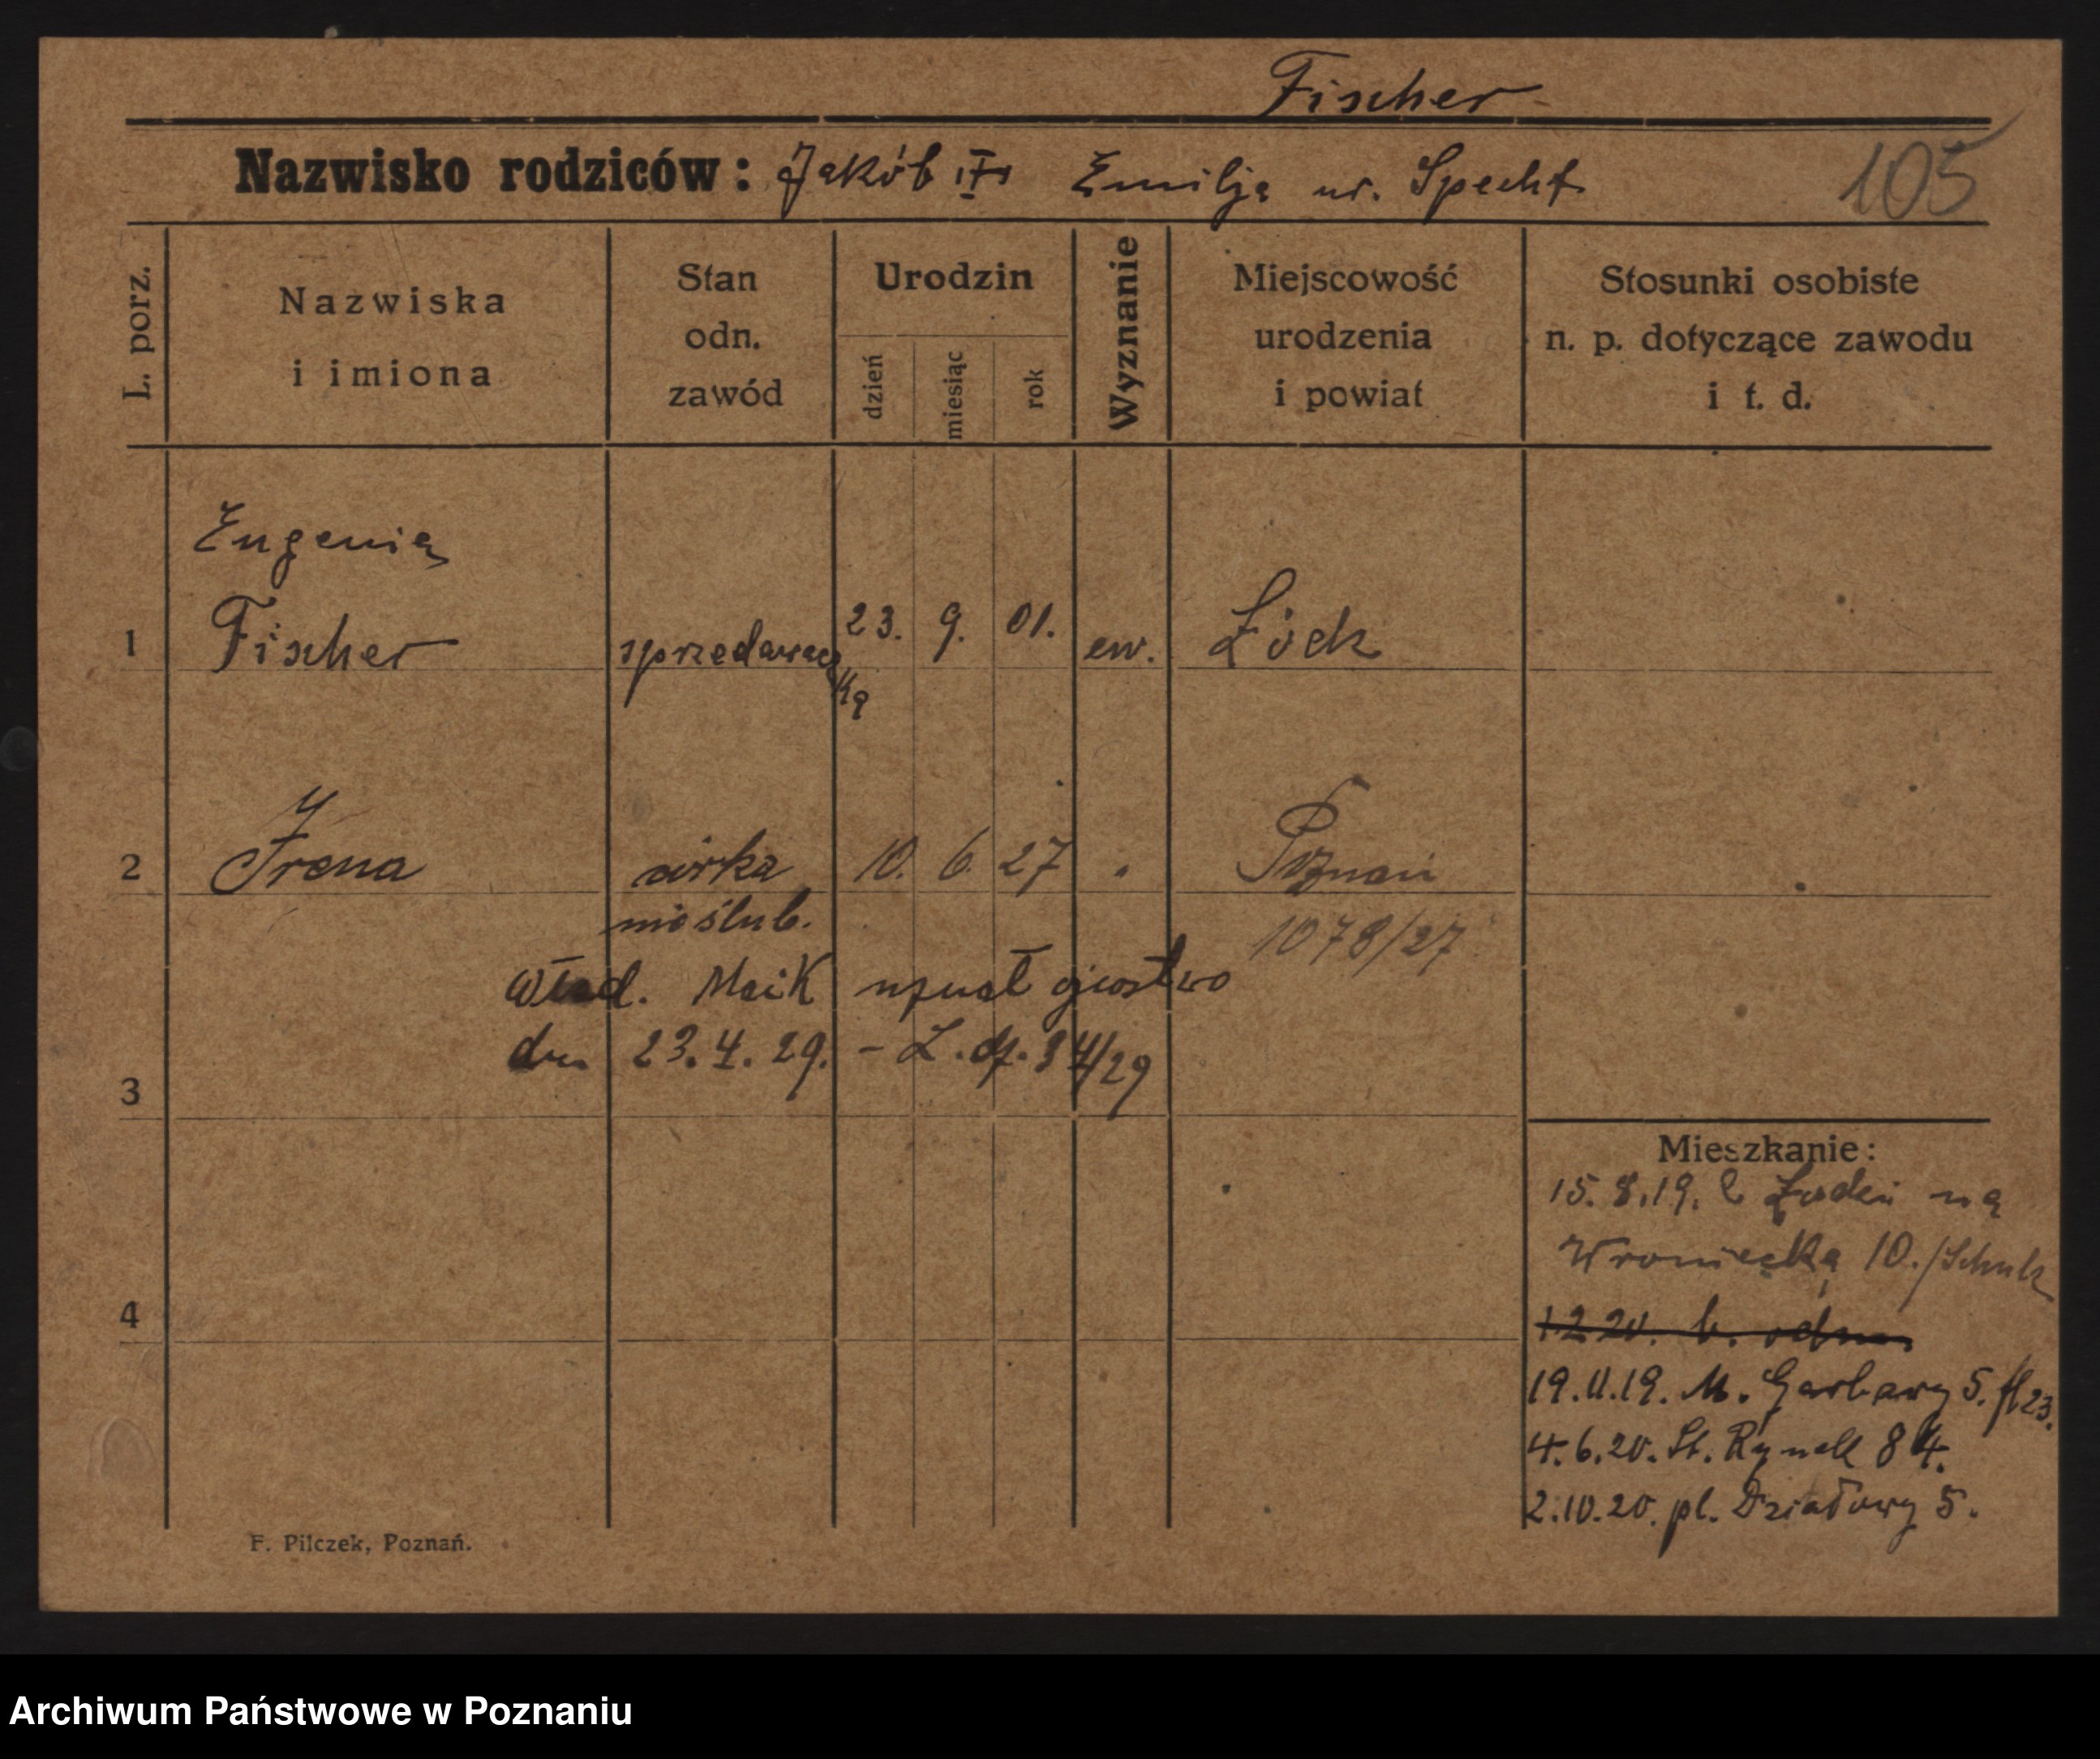 Fischer
Nazwisko rodziców: Jakób i Emilja ur. Specht
105
L. porz.
Nazwiska
i imiona
Stan
odn.
zawód
Urodzin
dzień
miesiąc
rok
Wyznanie
Miejscowość
urodzenia
i powiat
Stosunki osobiste
n. p. dotyczące zawodu
i t. d.
Eugenia
1 Fischer sprzedawacz 23. 9. 01. ew.
ka
2 Irena córka 10. 6. 27 " Poznań
nieślub. 1078/27
Wład. Maik uznał ojcostwo
dn 23.4.29. - L. dz. 34/29
3
4
Mieszkanie:
15.8.19. na
Wroniecka 10./Schulz
1.2.20. b. odm.
19.11.19. M. Garbary 5. fl 23.
4.6.20. St. Rynek 84.
2.10.20. pl. Działowy 5.
F. Pilczek, Poznań.
Archiwum Państwowe w Poznaniu